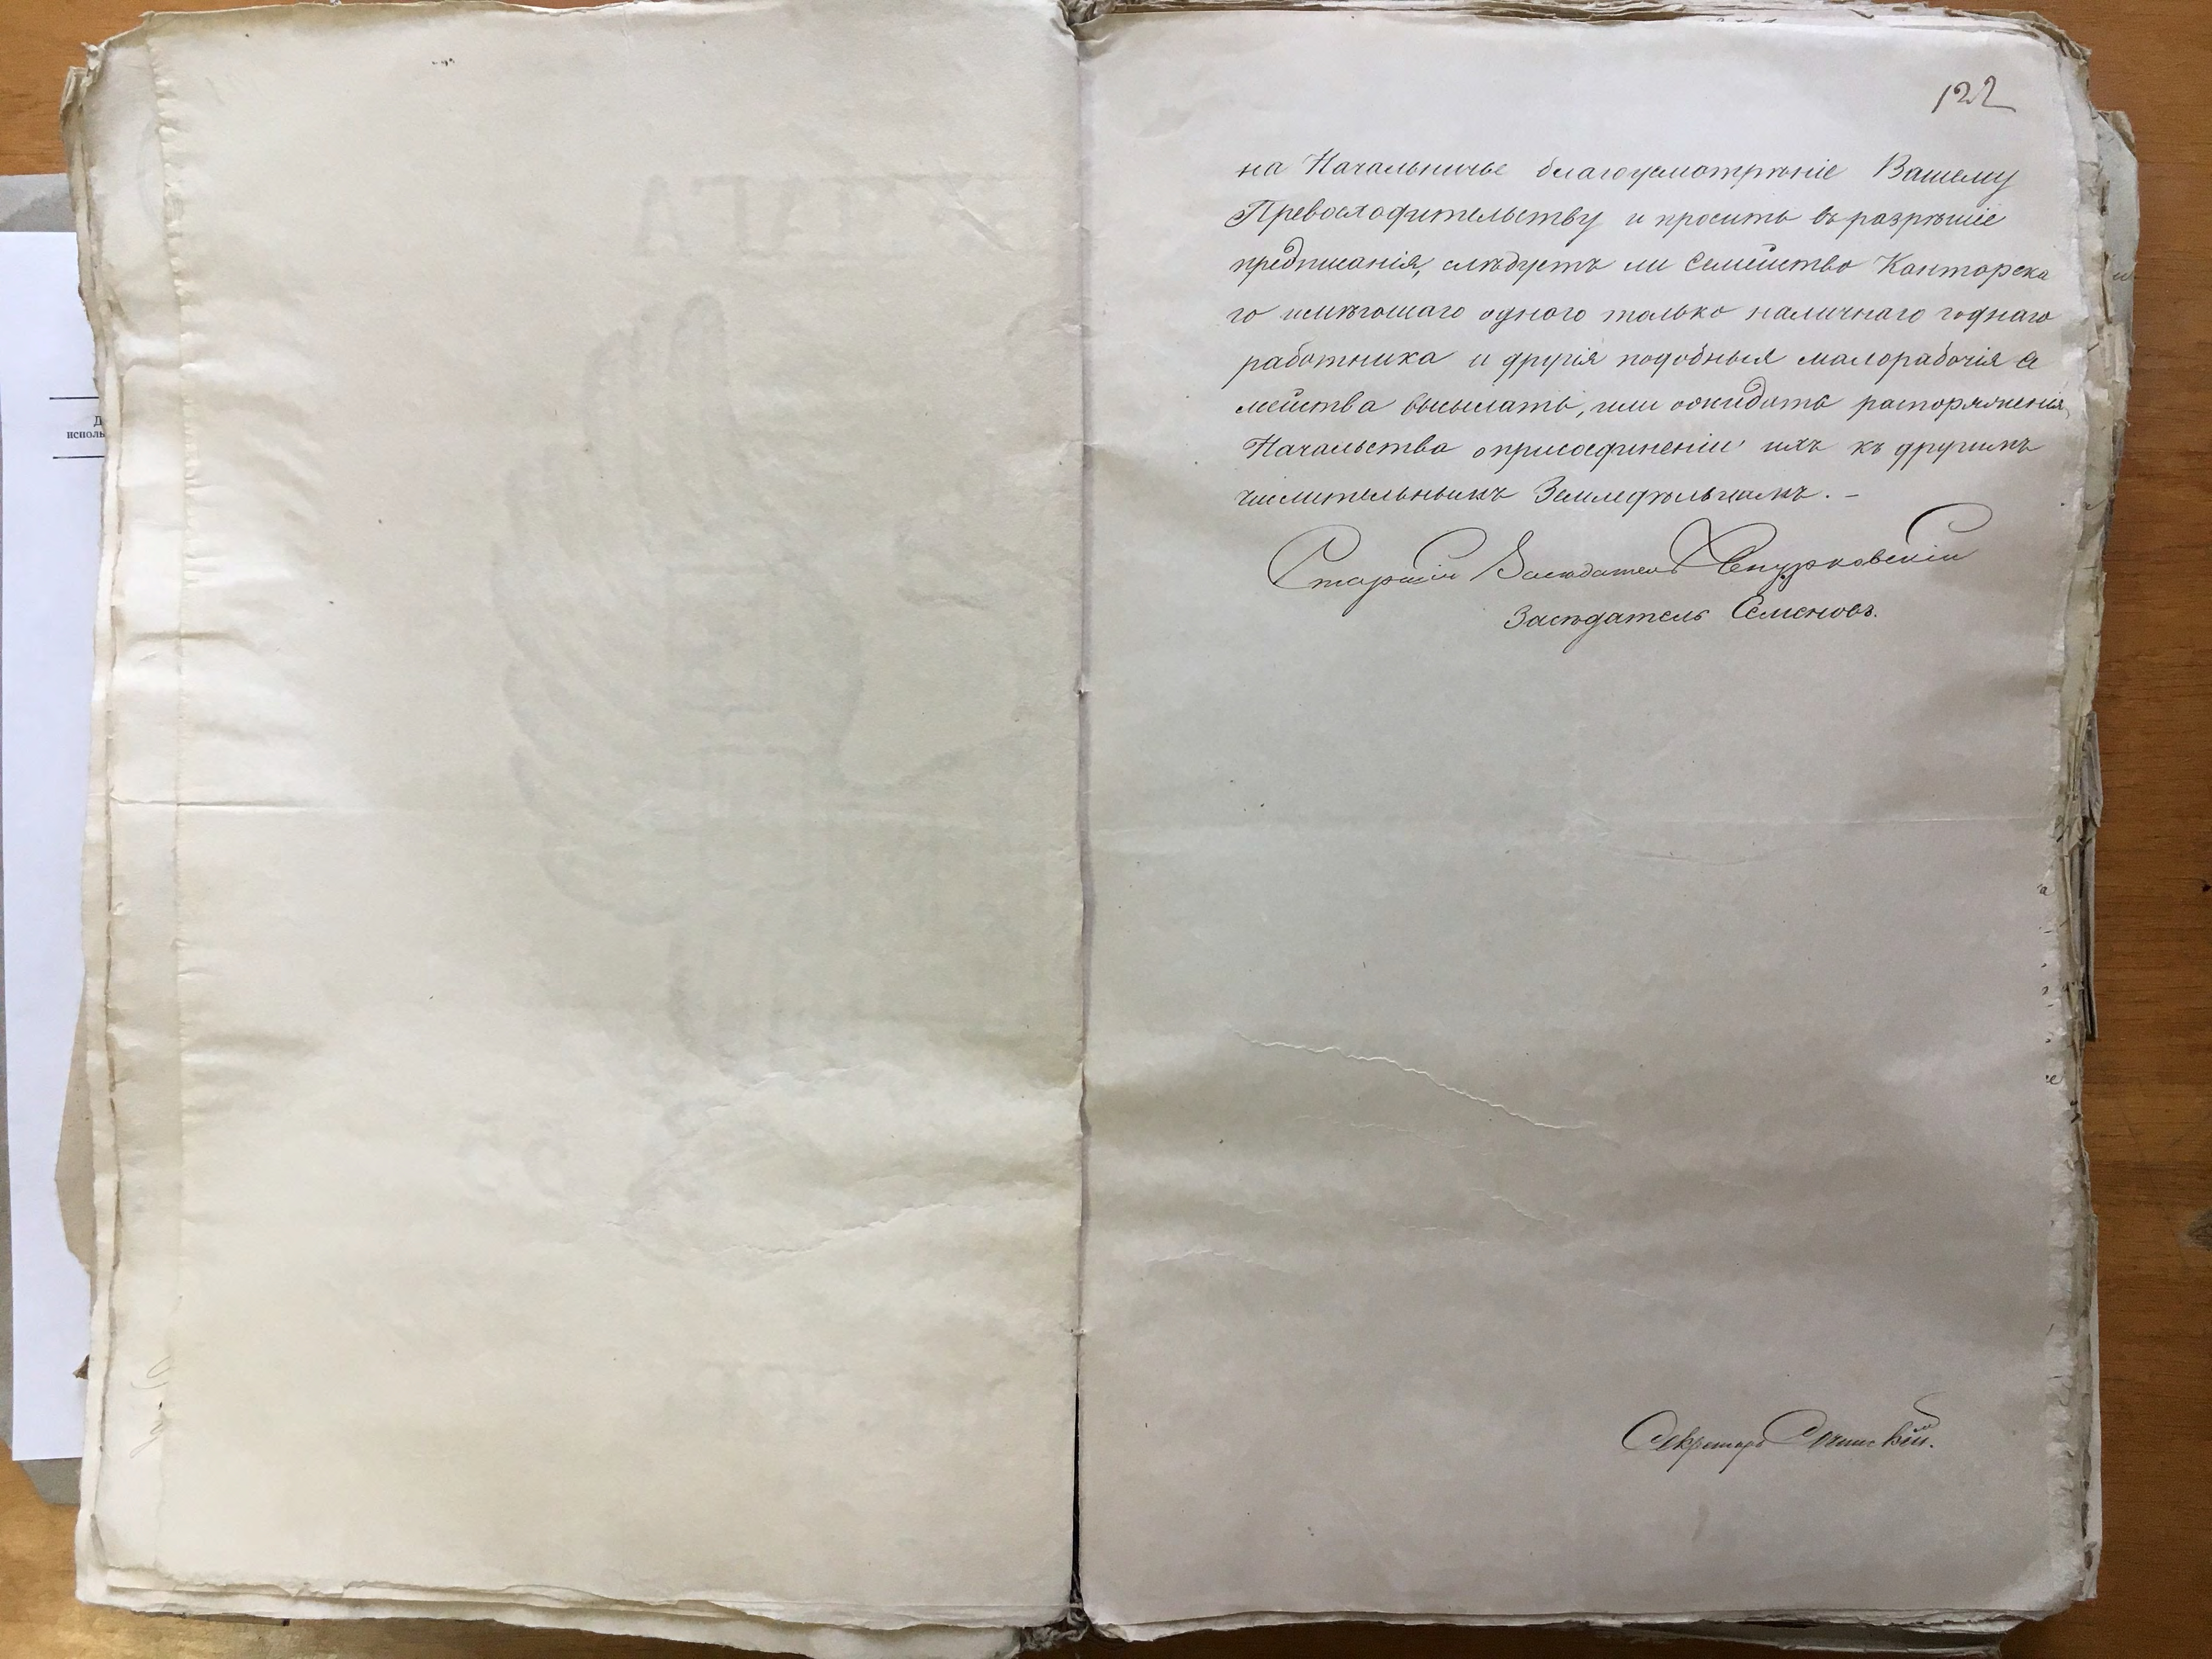 122
на Начальничье благоусмотрѣніе Вашему
Превосходительству и просить въ разрѣшіе
предписанія, слѣдуетъ ли Семейство Канторска
го имѣющаго одного только наличнаго годнаго
работника и другія подобныя малорабочія се
мейства высылать, или ожидать распоряженія
Начальства о присоединеніи ихъ къ другимъ
числительнымъ Земледѣльцамъ. –
Старшій Засѣдатель
Засѣдатель Семеновъ.
Секретарь